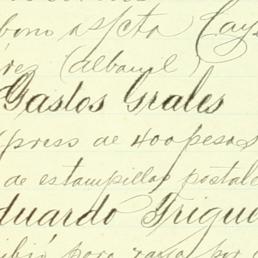 bono a s/cta Cays
(albanyl)
Gastos Grales
press de 400 pesos
de estampillas postale
duardo Trigue
ibió para por